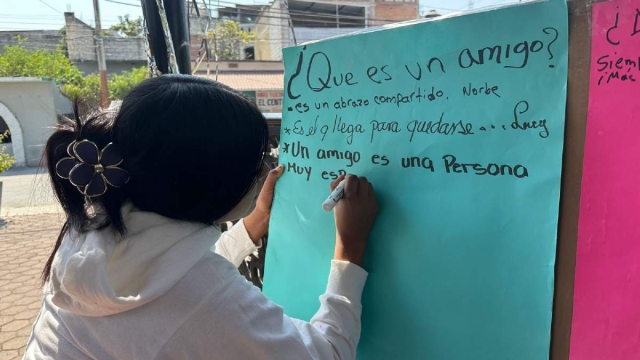 ¿Que es un amigo?
• es un abrazo compartido. Norbe
* Es el q llega para quedarse... Lucy
* Un amigo es una Persona
Muy esp
EL CENT
¿
Siem
¡Mac